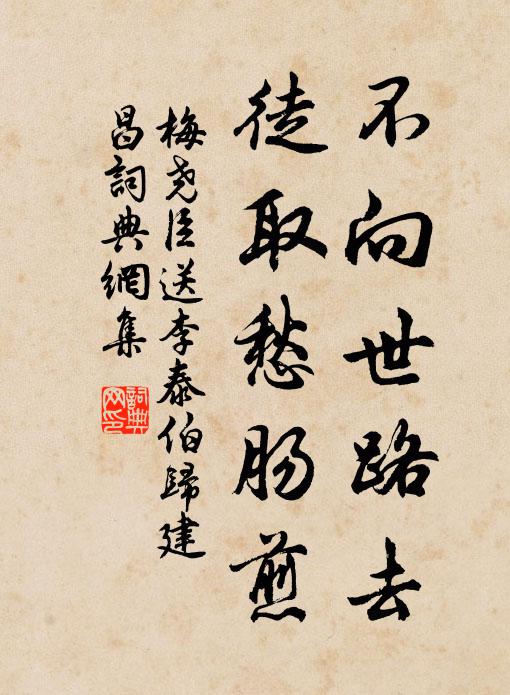 不向世路去
徒取愁肠煎
梅尧臣送李泰伯歸建
昌詞典網集
詞典
网印